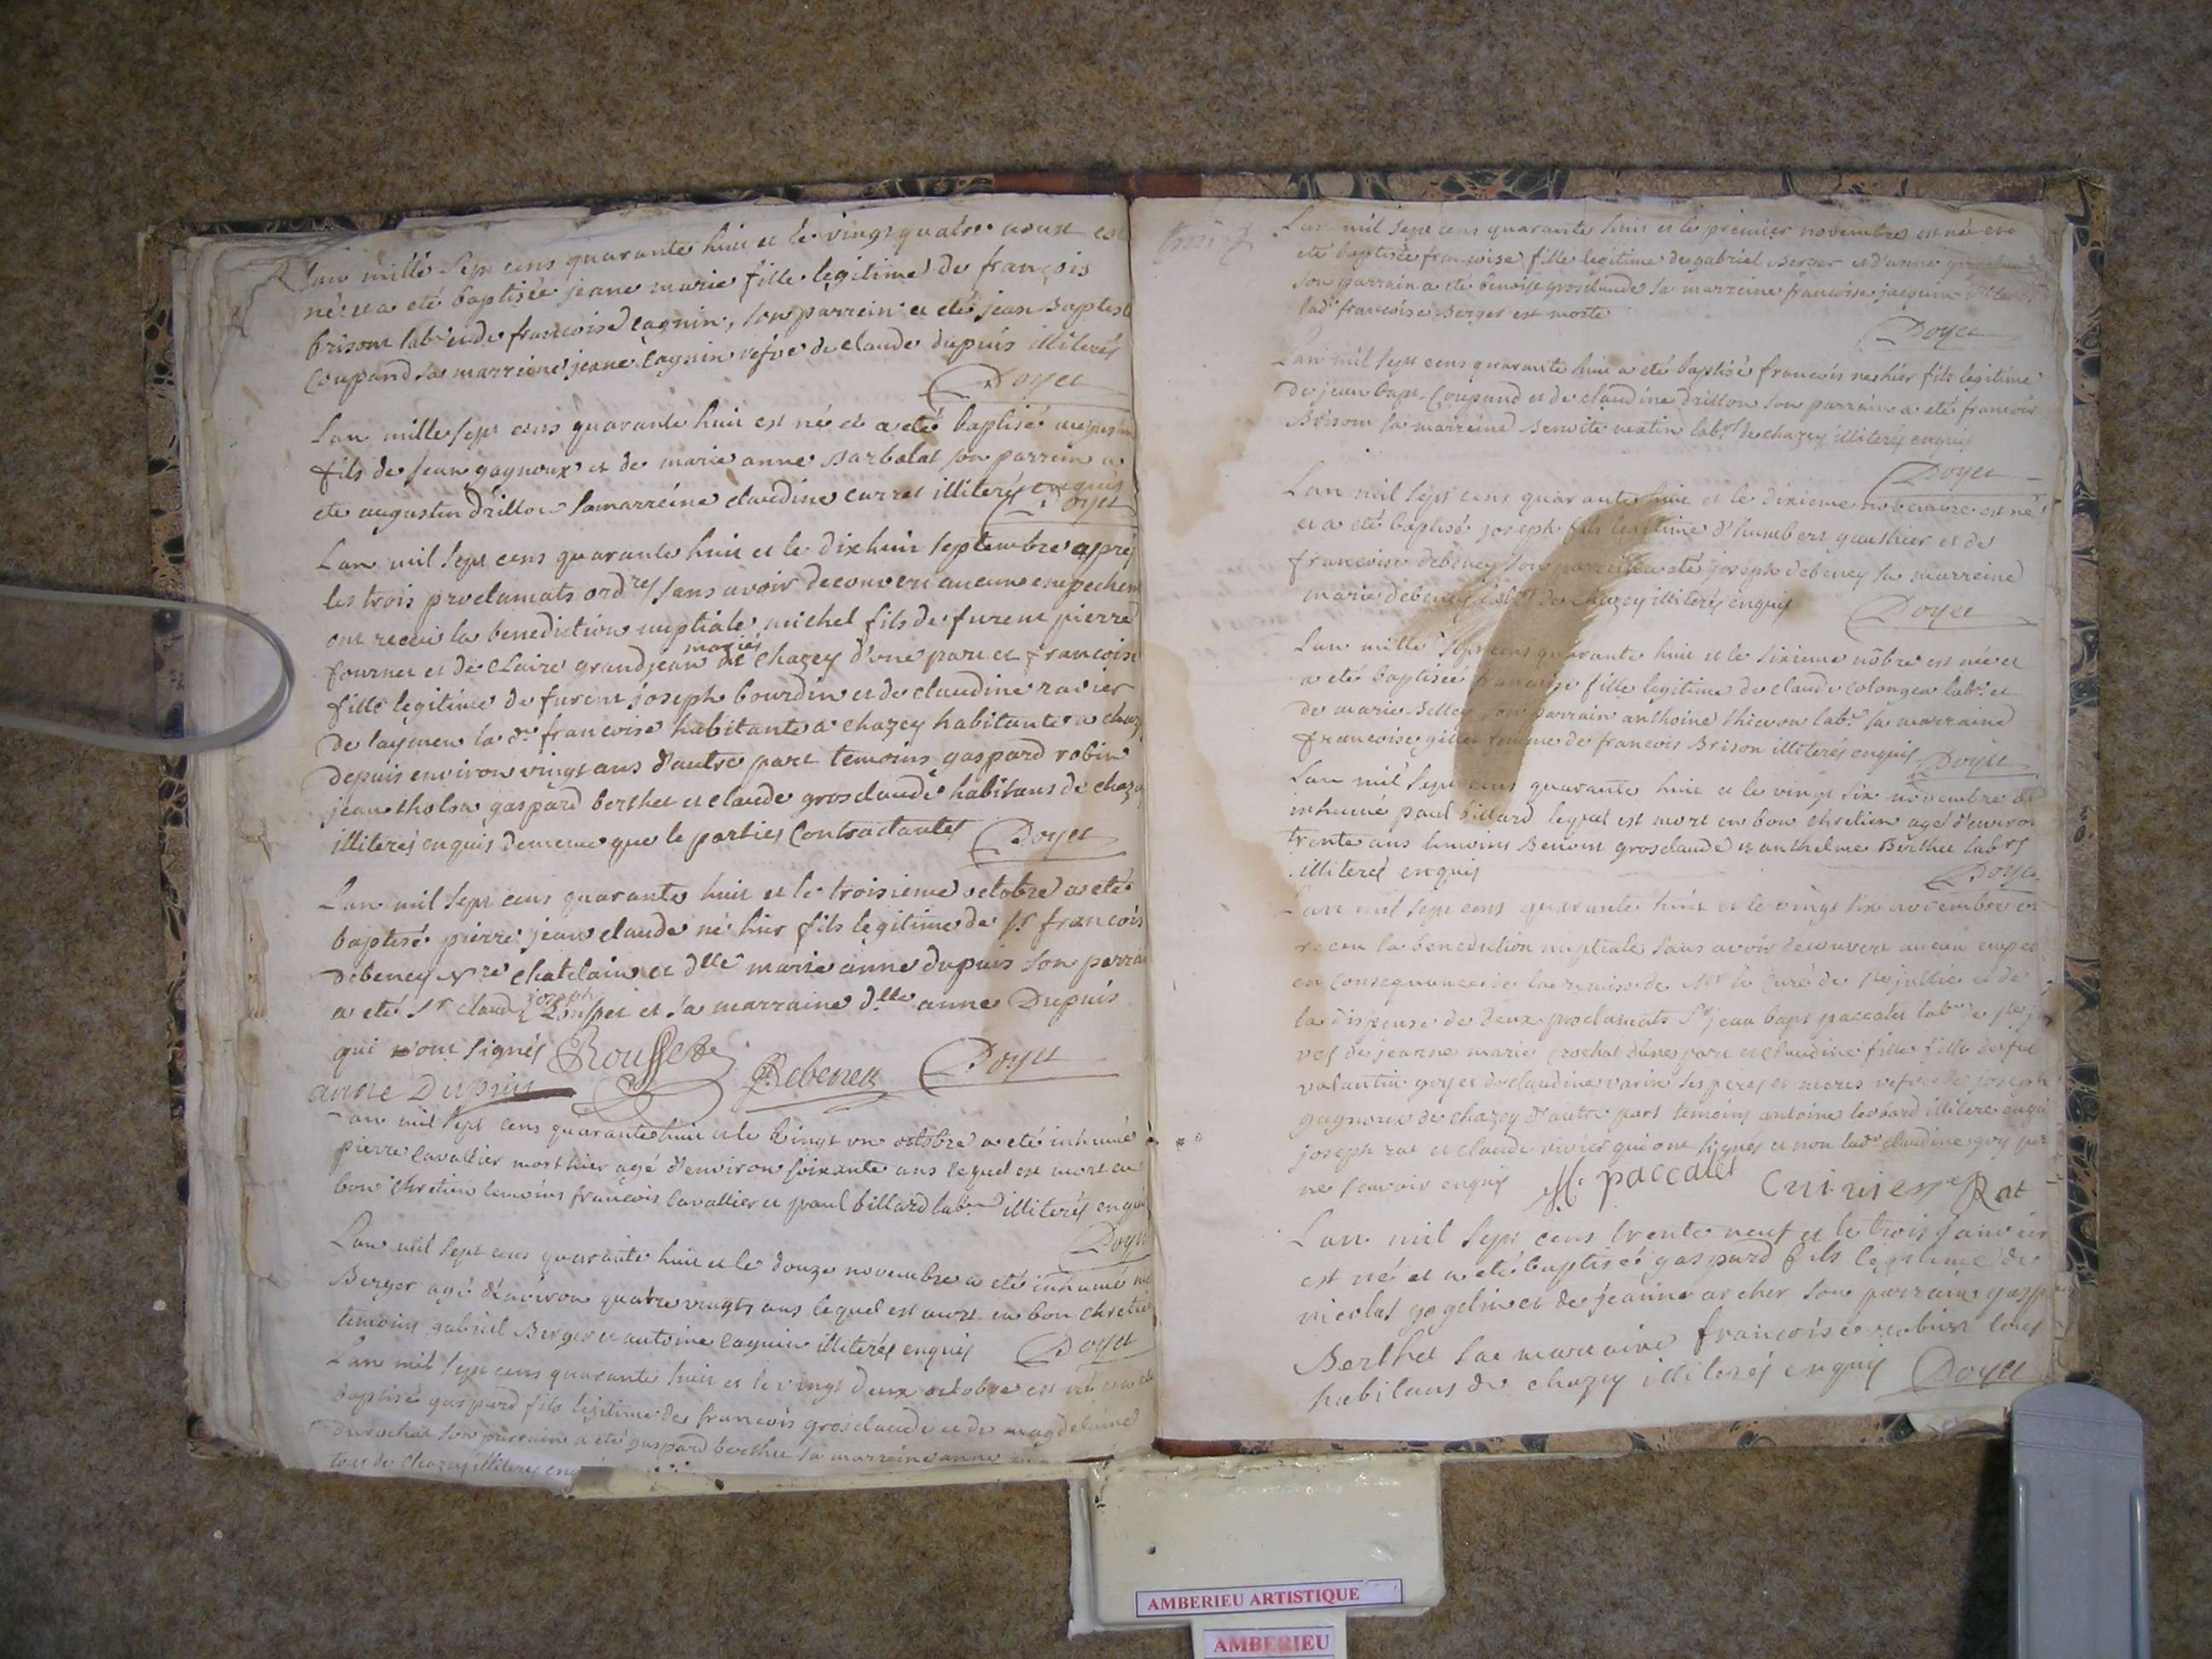 Lan mille sept cens quarante huit et le vingt quatre aoust est
né et a eté baptisée jeane marie fille legitime de françois
brisont labr et de francoise cagnin, son parrein a eté jean Baptist
Coupand sa marreine jeane Cagnin vefve de claude dupuis illiterés
Doyet
Lan mille sept cens quarante huit est né et a eté baptisé augustin
fils de jean gagnoux et de marie anne Barbalat son parrein a
eté augustin drillon sa marréine claudine curret illiterés enquis
Doyet
Lan mil sept cens quarante huit et le dixhuit septembre apprés
les trois proclamats ordres sans avoir decouvert aucun empechem
ont receu la benediction nuptiale michel fils de furent pierre
mariés
fournet et de Claire grandjean de Chazey d'une part et francoise
fille legitime de furent joseph bourdin et de claudine ravier
de laymen la dte francoise habitante a chazey habitante a chaz
depuis environ vingt ans d'autre part temoins gaspard robin
jean tholon gaspard berthet et claude grosclaude habitans de chazey
illiterés enquis dememe que le parties Contractantes Doyet
Lan mil sept cens quarante huit et le troisieme octobre a eté
baptisé pierre jean claude né hier fils legitime de sr francois
Debeney Nre chatelain et dlle marie anne dupuis son parrain
joseph
a eté Sr claude Rousset et sa marraine dlle anne Dupuis
qui ont signés Rousset Debeney Doyet
anne Dupuis
Lan mil sept cens quarante huit et le vingt un octobre a eté inhumé
pierre Cavallier mort hier agé d'environ soixante ans lequel est mort en
bon chretien temoins francois Cavallier et paul billard labr illiterés enquis
Doyet
Lan mil sept cens quarante huit et le douze novembre a eté inhumé
Berger agé d'environ quatre vingts ans lequel est mort en bon chretien
temoins gabriel Berger et antoine Cagnin illiterés enquis Doyet
Lan mil sept cens quarante huit et le vingt deux octobre est né et a eté
baptisé gaspard fils legitime de francois grosclaude et de magdelaine
Durochat son parrain a eté gaspard berthet sa marréine anne
tous de Chazey illiterés enq
Lan mil sept cens quarante huit et le premier novembre est né et a
eté baptisée francoise fille legitime de gabriel Berger et d'anne
son parrain a eté benoist grosclaude sa marreine francoise jacquin
lad francoise Berger est morte
Doyet
Lan mil sept cens quarante huit a eté baptisé francois né hier fils legitime
de jean bapt. Coupand et de claudine drillon son parrain a eté francois
Brisont sa marréine Benoite matin labrs de chazey illiterés enquis
Doyet
Lan mil sept cens quarante huit et le dixieme novembre est né
et a eté baptisé joseph fils legitime d'humbert gauthier et de
francoise debeney son parrein a eté joseph debeney sa marreine
marie debeney labrs de chazey illiterés enquis Doyet
Lan mille sept cens quarante huit et le sixieme nobre est née et
a eté baptisée francoise fille legitime de claude Colongea labr et
de marie Belley son parrain anthoine thievon labr sa marraine
francoise gillet femme de francois Brison illiterés enquis Doyet
Lan mil sept cens quarante huit et le vingt six novembre
inhumé paul billard lequel est mort en bon chretien agé d'environ
trente ans temoins Benoist grosclaude et anthelme Berthet labrs
illiterés enquis Doyet
Lan mil sept cens quarante huit et le vingt six novembre
receu la benediction nuptiale sans avoir decouvert aucun empec
en consequence de la remise de Mr le curé de ste jullie et de
la dispense de deux proclamats Sr jean bapt paccalet labr de ste
vef de jeanne marie Crochat d'une part et Claudine fille de fut
valantin goy et de claudine varin ses peres et meres vefve de joseph
gagnoux de chazey d'autre part temoins antoine leobard illitere enquis
joseph rat et claude vivier qui ont signés et non lade claudine goy pour
ne scavoir enquis paccalet Rat
Lan mil sept cens trente neuf et le trois janvier
est né et a eté baptisé gaspard fils legitime de
nicolas gogelin et de jeanne archer son parrain gasp
Berthet sa marraine francoise robin tous
habitans de chazey illiterés enquis Doyet
AMBERIEU ARTISTIQUE
AMBERIEU